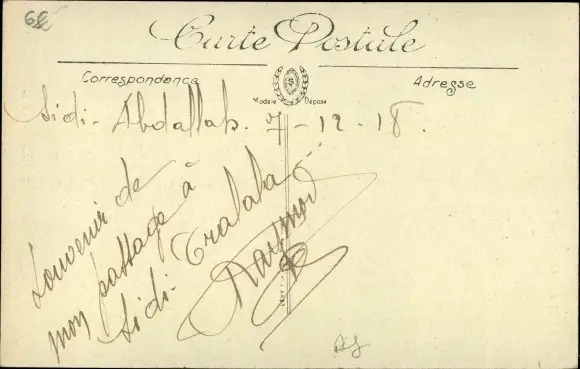 Carte Postale
Correspondance
Adresse
Modèle Déposé
Sidi-Abdallah. 7-12-18.
Souvenir de
mon passage à
Sidi-Tralala...
Raymond